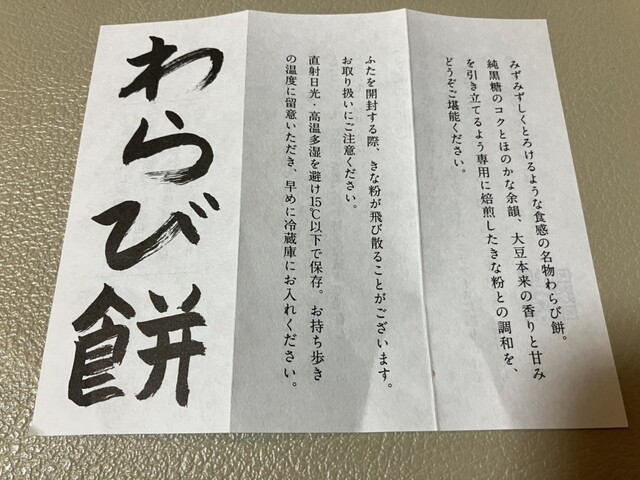 みずみずしくとろけるような食感の名物わらび餅。
純黒糖のコクとほのかな余韻、大豆本来の香りと甘み
を引き立てるよう専用に焙煎したきな粉との調和を、
どうぞご堪能ください。
ふたを開封する際、きな粉が飛び散ることがございます。
お取り扱いにご注意ください。
直射日光・高温多湿を避け15℃以下で保存。お持ち歩き
の温度に留意いただき、早めに冷蔵庫にお入れください。
わらび餅